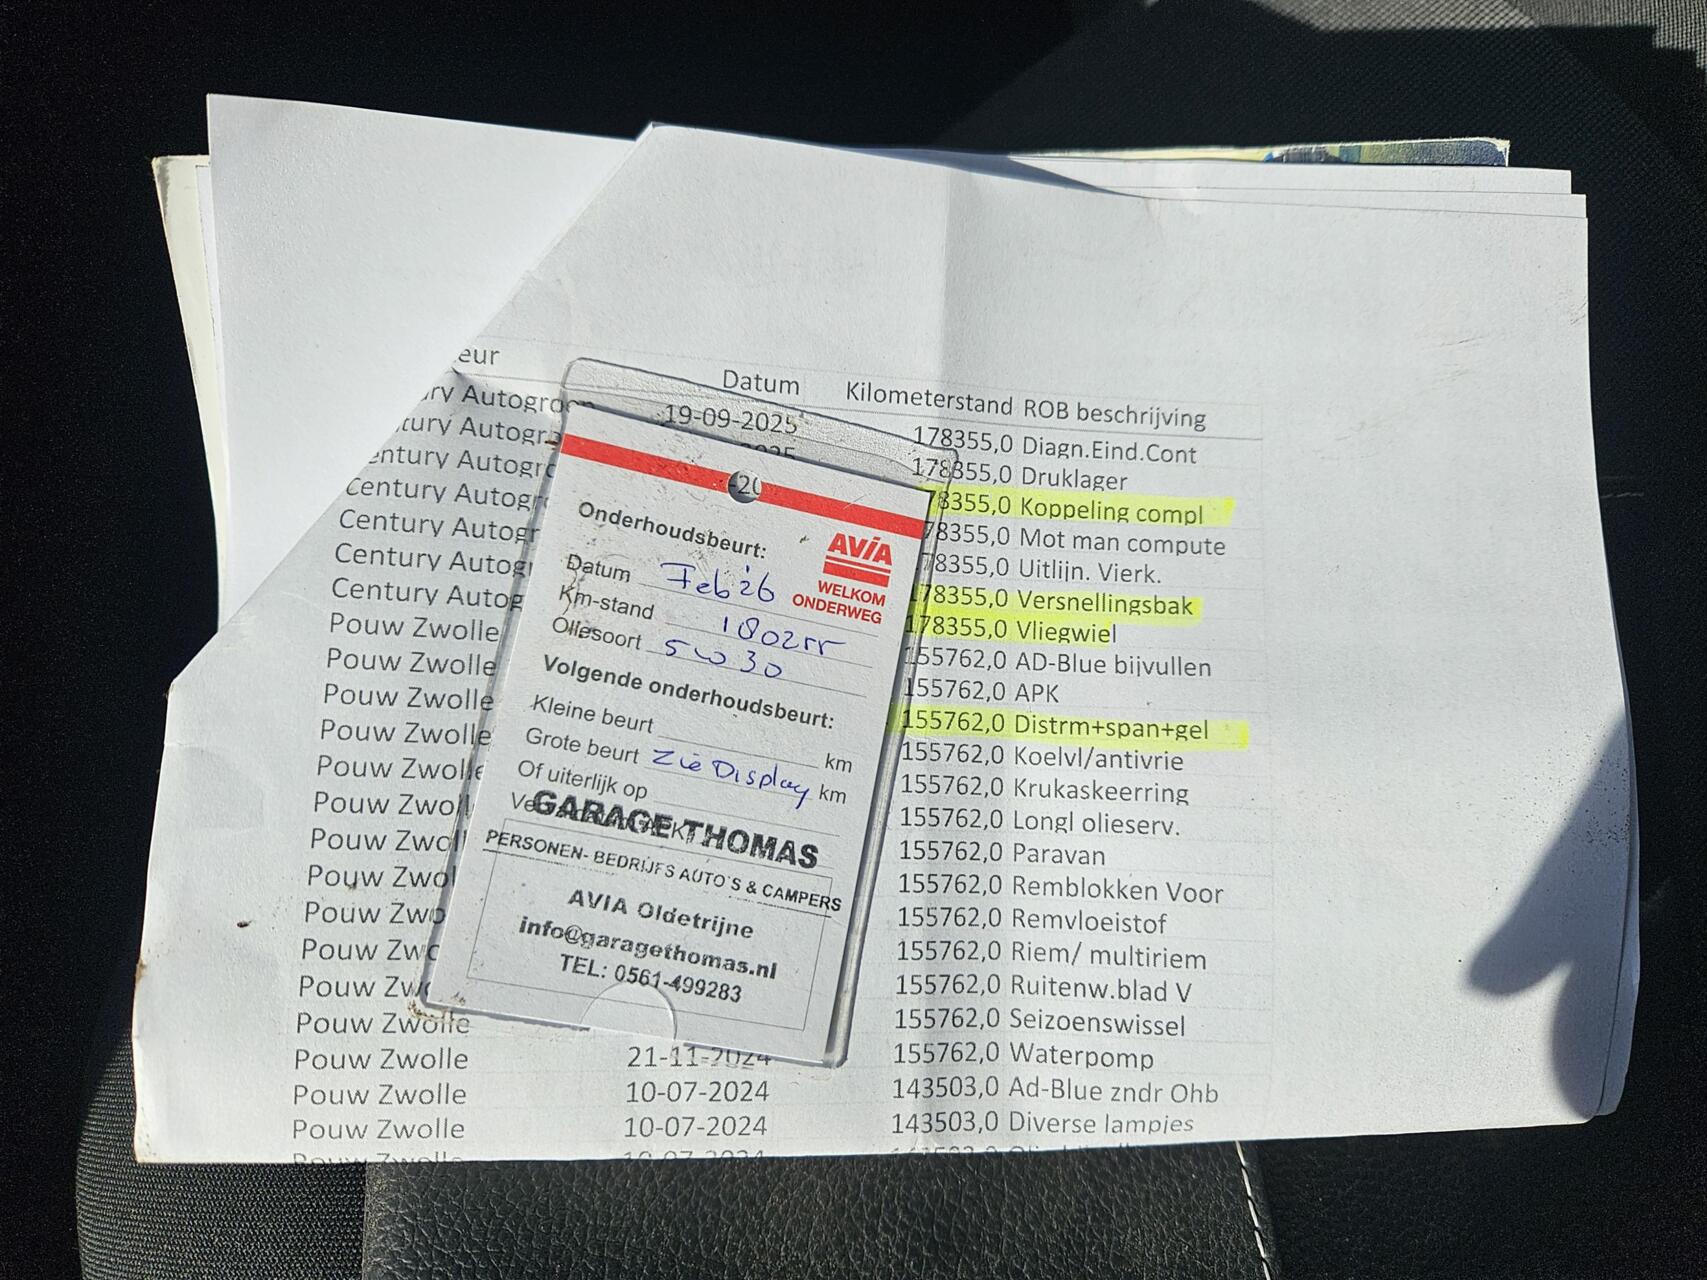 eur Datum Kilometerstand ROB beschrijving
ry Autogroep 19-09-2025 178355,0 Diagn.Eind.Cont
tury Autogro 2025 178355,0 Druklager
entury Autogro 78355,0 Koppeling compl
Century Autogr 78355,0 Mot man compute
Century Autogr 78355,0 Uitlijn. Vierk.
Century Autog 178355,0 Versnellingsbak
Century Autog 178355,0 Vliegwiel
Pouw Zwolle 155762,0 AD-Blue bijvullen
Pouw Zwolle 155762,0 APK
Pouw Zwolle 155762,0 Distrm+span+gel
Pouw Zwolle 155762,0 Koelvl/antivrie
Pouw Zwolle 155762,0 Krukaskeerring
Pouw Zwol 155762,0 Longl olieserv.
Pouw Zwol 155762,0 Paravan
Pouw Zwol 155762,0 Remblokken Voor
Pouw Zwo 155762,0 Remvloeistof
Pouw Zwo 155762,0 Riem/ multiriem
Pouw Zwo 155762,0 Ruitenw.blad V
Pouw Zwolle 155762,0 Seizoenswissel
Pouw Zwolle 21-11-2024 155762,0 Waterpomp
Pouw Zwolle 10-07-2024 143503,0 Ad-Blue zndr Ohb
Pouw Zwolle 10-07-2024 143503,0 Diverse lampjes
Pouw Zwolle
-20
Onderhoudsbeurt:
AVIA
WELKOM
ONDERWEG
Datum Feb '26
Km-stand
Oliesoort 5w30
Volgende onderhoudsbeurt:
Kleine beurt km
Grote beurt Zie Display km
Of uiterlijk op
GARAGE THOMAS
PERSONEN- BEDRIJFS AUTO'S & CAMPERS
AVIA Oldetrijne
info@garagethomas.nl
TEL: 0561-499283